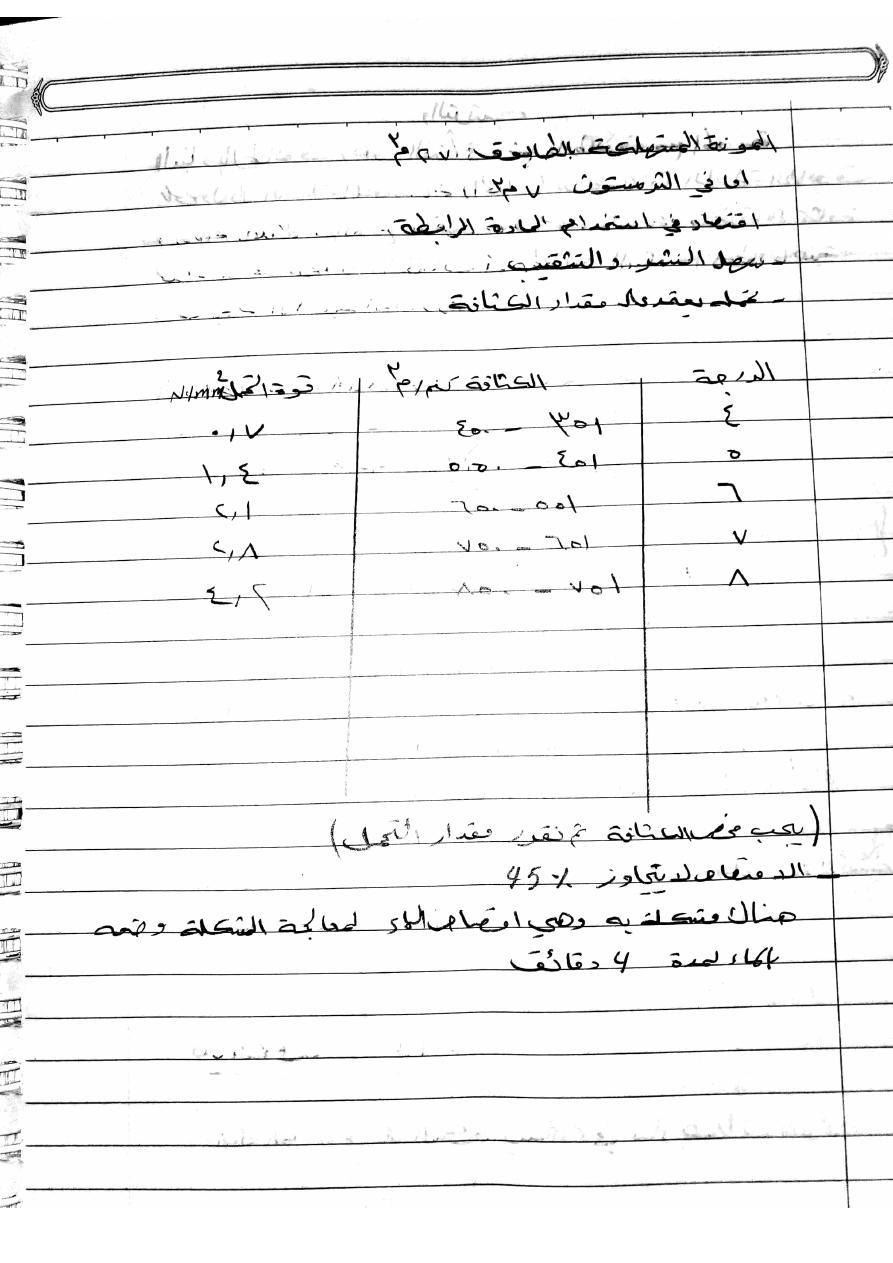 المونة المستهلكة بالطابوق ٢٧ م٣
اما في الثرمستون ٧ م٣
اقتصاد في استخدام المادة الرابطة
- سهل النشر والتثقيب
- تحمله يعتمد على مقدار الكثافة
الدرجة الكثافة كغم/م٣ قوة التحمل N/mm²
٤ ٣٥١ - ٤٥٠ ٠,٧
٥ ٤٥١ - ٥٥٠ ١,٤
٦ ٥٥١ - ٦٥٠ ٢,١
٧ ٦٥١ - ٧٥٠ ٢,٨
٨ ٧٥١ - ٨٥٠ ٤,٢
(يجب فحص الكثافة ثم نقدر مقدار التحمل)
- الامتصاص لا يتجاوز 45%
هناك مشكلة به وهي امتصاص الماء لمعالجة المشكلة وضعه
بالماء لمدة 4 دقائق